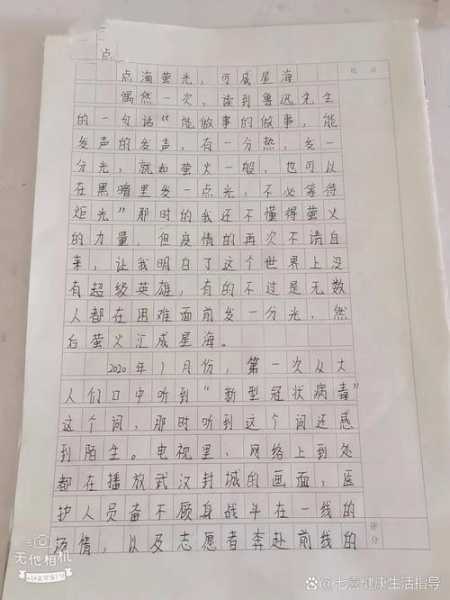 点
点滴萤光，可成星海
偶然一次，读到鲁迅先生
的一句话“能做事的做事，能
发声的发声，有一分热，发一
分光，就如萤火一般，也可以
在黑暗里发一点光，不必等待
炬光”那时的我还不懂得萤火
的力量，但疫情的再次不请自
来，让我明白了这个世界上没
有超级英雄，有的不过是无数
人都在困难面前发一分光，然
后萤火汇成星海。
2020年1月份，第一次从大
人们口中听到“新型冠状病毒”
这个词，那时听到这个词还感
到陌生。电视里，网络上到处
都在播放武汉封城的画面，医
护人员奋不顾身战斗在一线的
疫情，以及志愿者奔赴前线的
评分
无他相机
七云健康生活指导